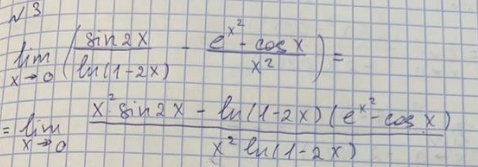 №3
lim x→0 (sin2x / ln(1-2x) - (e^x² - cos x) / x²) =
= lim x→0 (x² sin2x - ln(1-2x)(e^x² - cos x)) / (x² ln(1-2x))